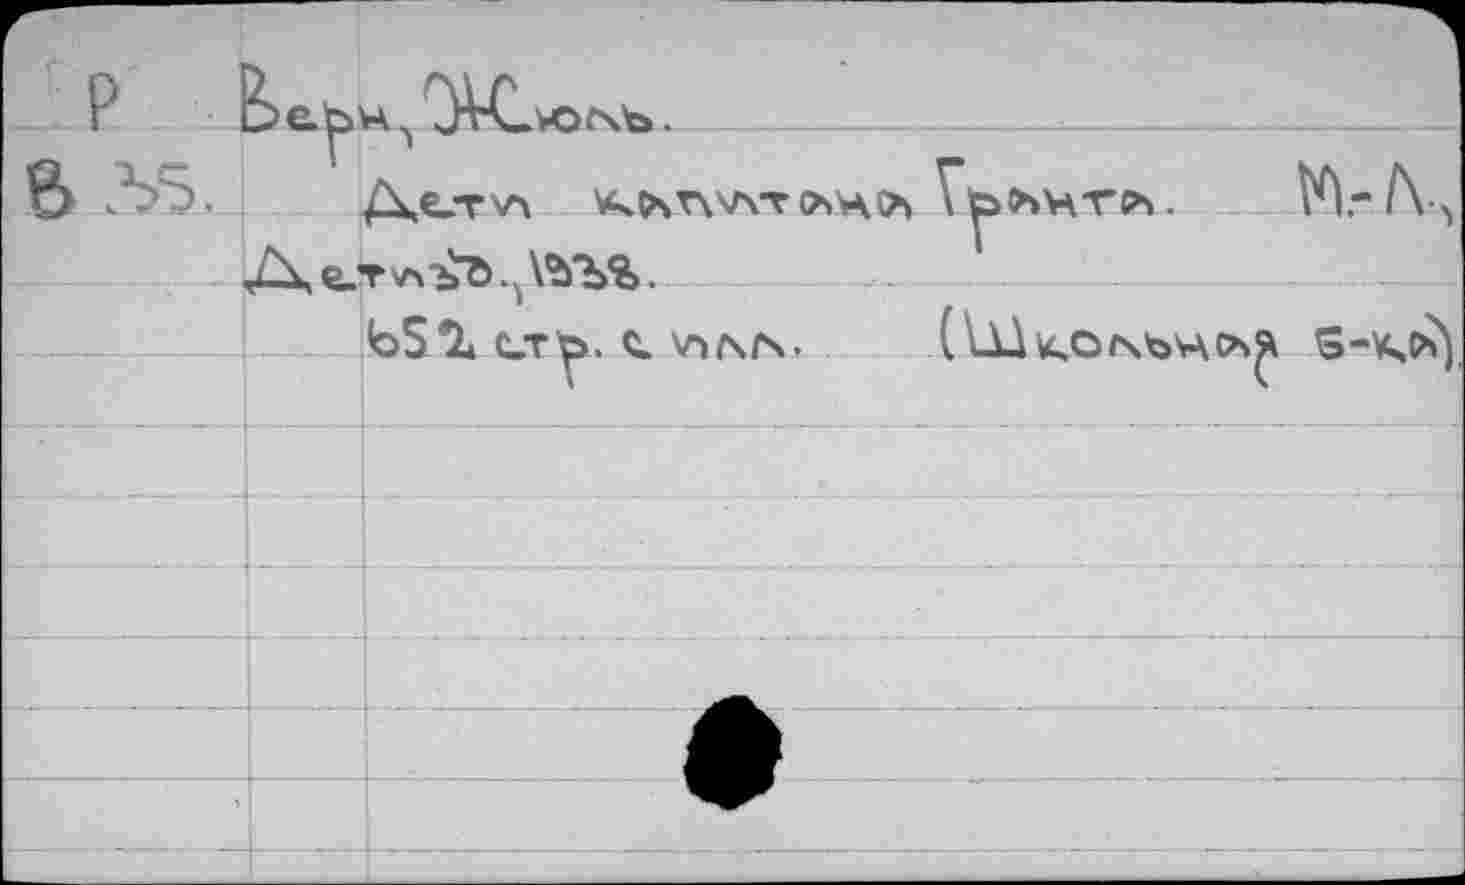 Р Верн, Жюль.
В 35. Дети капитана Гранта. М.-Л.,
Детиздат, 1938.
652 стр. с илл. (Школьная б-ка)